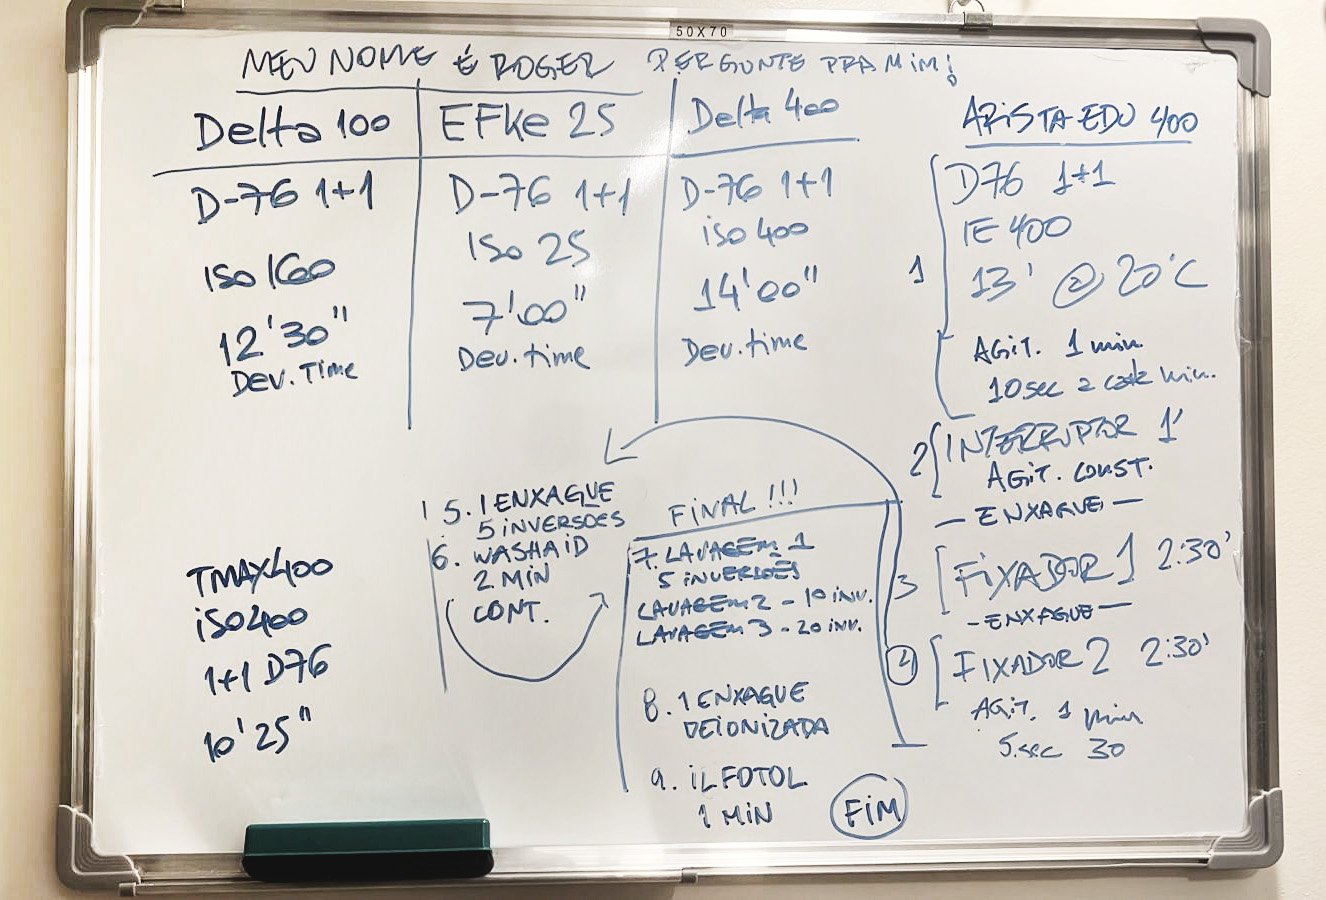 50X70
MEU NOME É ROGER PERGUNTE PRA MIM!
Delta 100
D-76 1+1
ISO 160
12'30"
DEV. TIME
EFKe 25
D-76 1+1
ISO 25
7'00"
Dev. time
Delta 400
D-76 1+1
iso 400
14'00"
Dev. time
ARISTA EDU 400
1
D76 1+1
IE 400
13' @ 20°C
AGIT. 1 min
10 sec a cada min.
2 INTERRUPTOR 1'
AGIT. CONST.
— ENXAGUE —
3 FIXADOR 1 2:30'
- ENXAGUE —
4 FIXADOR 2 2:30'
AGIT. 1 min
5.sec 30
5. 1 ENXAGUE
5 INVERSÕES
6. WASHAID
2 MIN
CONT.
FINAL !!!
7. LAVAGEM 1
5 INVERSÕES
LAVAGEM 2 - 10 INV.
LAVAGEM 3 - 20 INV.
8. 1 ENXAGUE
DEIONIZADA
9. ILFOTOL
1 MIN
FIM
TMAX400
iSO400
1+1 D76
10'25"